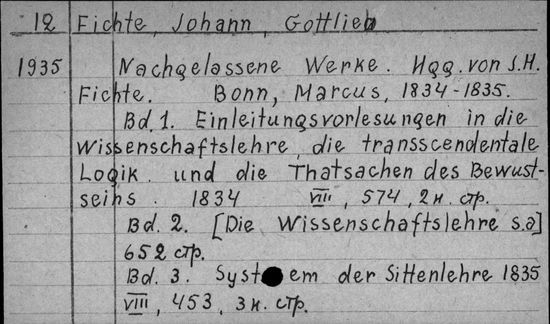 12 Fichte, Johann, Gottlieb
1935 Nachgelassene Werke. Hgg. von J.H.
Fichte. Bonn, Marcus, 1834-1835.
Bd. 1. Einleitungsvorlesungen in die
Wissenschaftslehre, die transscendentale
Logik. und die Thatsachen des Bewust-
seins. 1834 VIII, 574, 2 н. стр.
Bd. 2. [Die Wissenschaftslehre s.a]
652 стр.
Bd. 3. System der Sittenlehre 1835
VIII, 453, 3 н. стр.